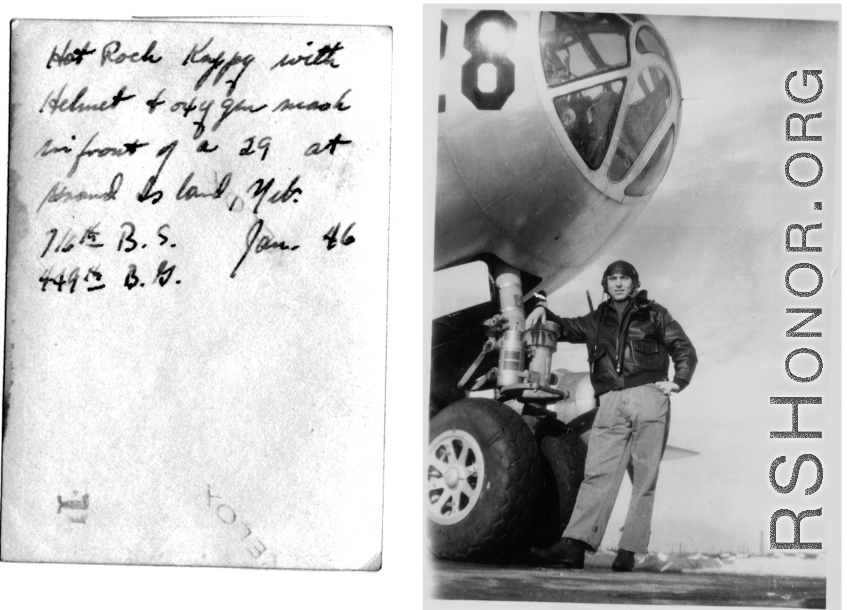 Hot Rock Kappy with
Helmet & oxygen mask
in front of a 29 at
Grand Island, Neb.
716th B.S. Jan. 46
449th B.G.
11
VELOX
28
RSHONOR.ORG